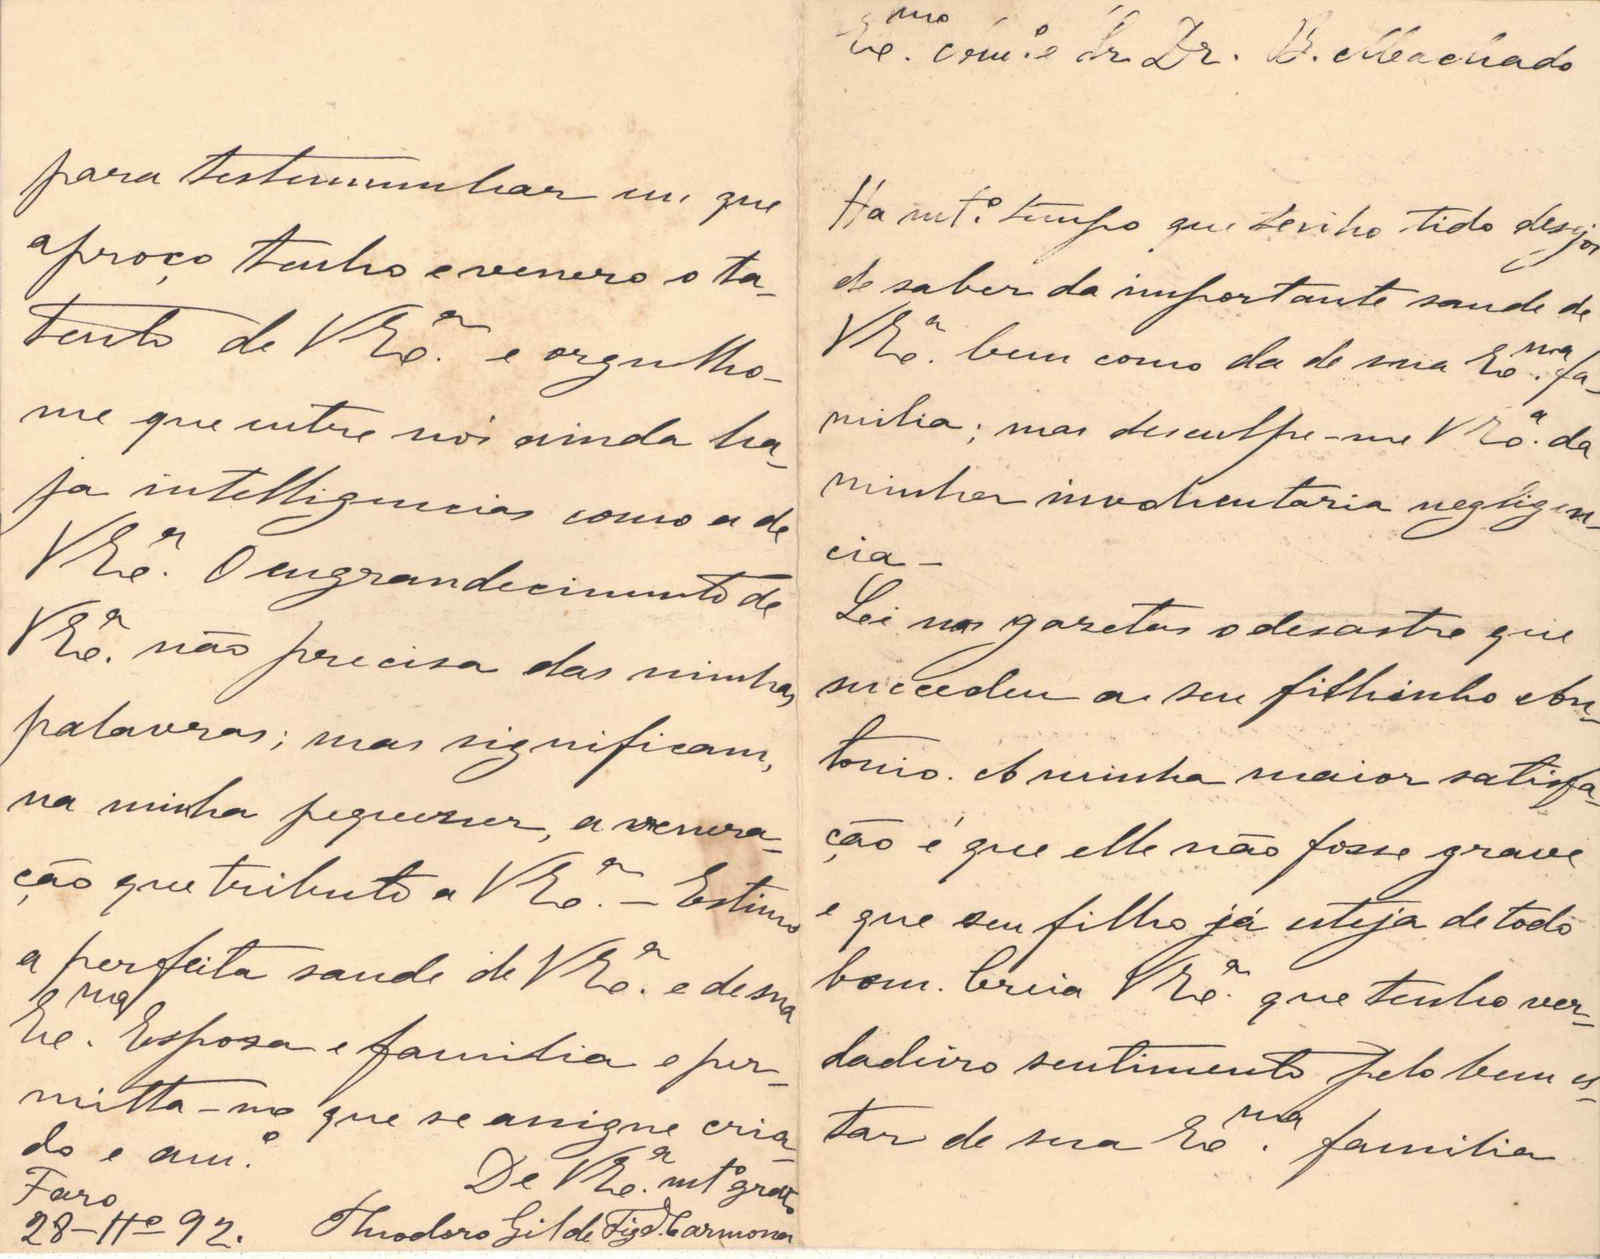 Exᵐᵒ. com.ᵉ Sr. Dr. B. Machado
Ha mt.º tempo que tenho tido desejos
de saber da importante saude de
V Exª. bem como da de sua Exᵐᵃ. fa-
milia; mas desculpe-me V Exª. da
minha involuntaria negligen-
cia –
Lei nas gazetas o desastre que
succedeu a seu filhinho An-
tonio. A minha maior satisfa-
ção é que elle não fosse grave
e que seu filho já esteja de todo
bom. Creia V Exª. que tenho ver-
dadeiro sentimento pelo bem es-
tar de sua Exᵐᵃ. familia
para testemunhar em que
aproço tenho e venero o ta-
lento de V Exª. e orgulho-
me que entre nós ainda ha-
ja intelligencias como a de
V Exª. O engrandecimento de
V Exª. não precisa das minhas
palavras; mas significam,
na minha pequenez, a venera-
ção que tributo a V Exª. – Estimo
a perfeita saude de V Exª. e de sua
Exᵐᵃ. Esposa e familia e per-
mitta-me que se assigne cria-
do e am.º
De V Exª. mtº grato
Faro
28–11º–92. Theodoro Gil de Figᵈᵒ Carmona